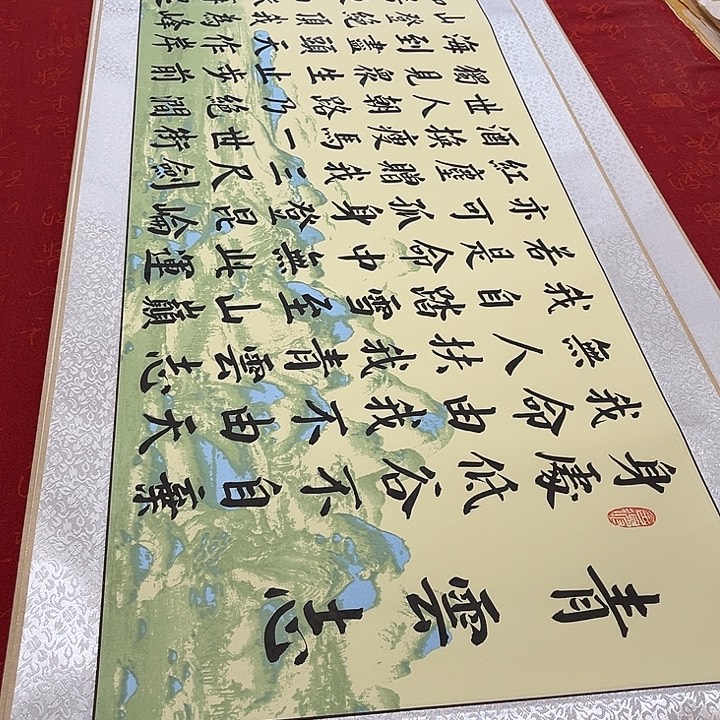 青雲志
身處低谷不自棄
我命由我不由天
無人扶我青雲志
我自踏雪至山巔
若是命中無此運
亦可孤身登昆崘
紅塵贈我三尺劍
酒換瘦馬一世術
世人朝路乃絕澗
獨見眾生止步前
海到盡頭天作岸
山登絕頂我為峰